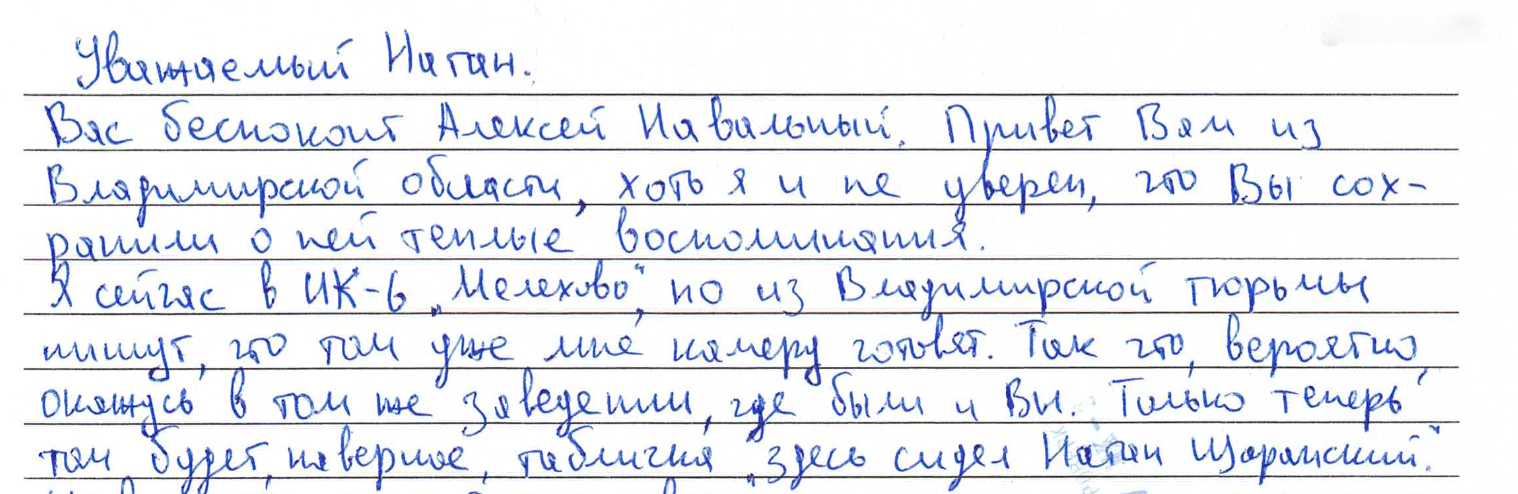 Уважаемый Натан.
Вас беспокоит Алексей Навальный. Привет Вам из
Владимирской области, хоть я и не уверен, что Вы сох-
ранили о ней теплые воспоминания.
Я сейчас в ИК-6 „Мелехово“, но из Владимирской тюрьмы
пишут, что там уже мне камеру готовят. Так что, вероятно,
окажусь в том же заведении, где были и Вы. Только теперь
там, будет, наверное, табличка „здесь сидел Натан Щаранский“.